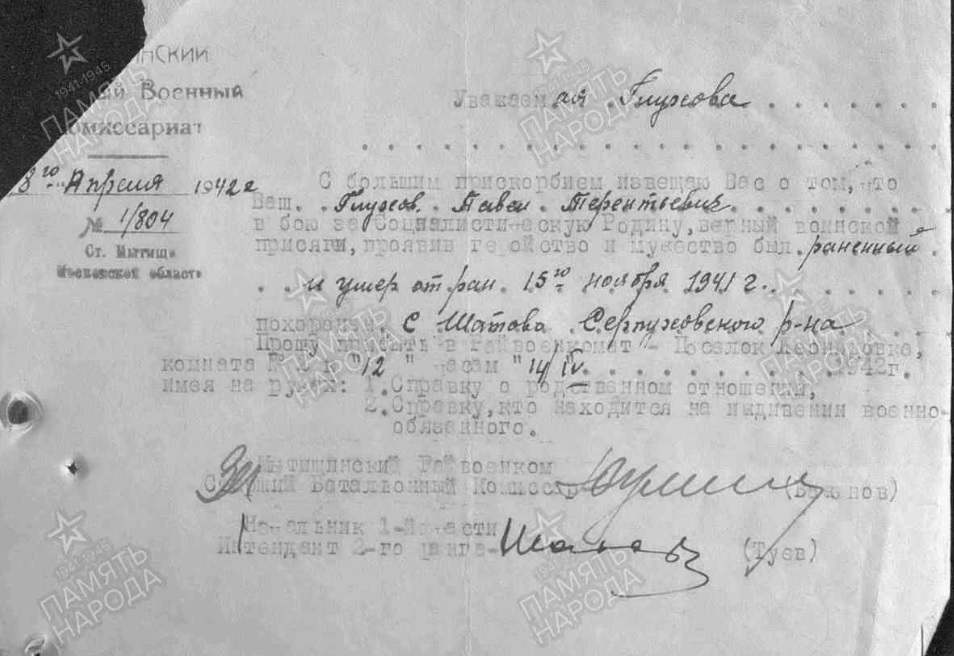 нский
ый Военный
омиссариат
8го Апреля 1942г
№ 1/804
Ст. Мытищи
Московской области
Уважаемая Глухова
С большим прискорбием извещаю Вас о том, что
Ваш. Глухов. Павел. Терентьевич
в бою за Социалистическую Родину, верный воинской
присяги, проявив геройство и мужество был раненный
и умер от ран. 15го ноября 1941 г.
похоронен. С Шатово Серпуховского р-на
Прошу прибыть в Райвоенкомат - Поселок
комната № к "12" часам "14/IV 1942г.
имея на руках: 1. Справку о родственном отношении,
2. Справку, кто находится на иждивении военно-
обязанного.
Мытищинский Райвоенком
Старший Батальонный Комиссар
Начальник 1-й части
Интендант 2-го ранга- (Туев)
1941-1945
ПАМЯТЬ
НАРОДА